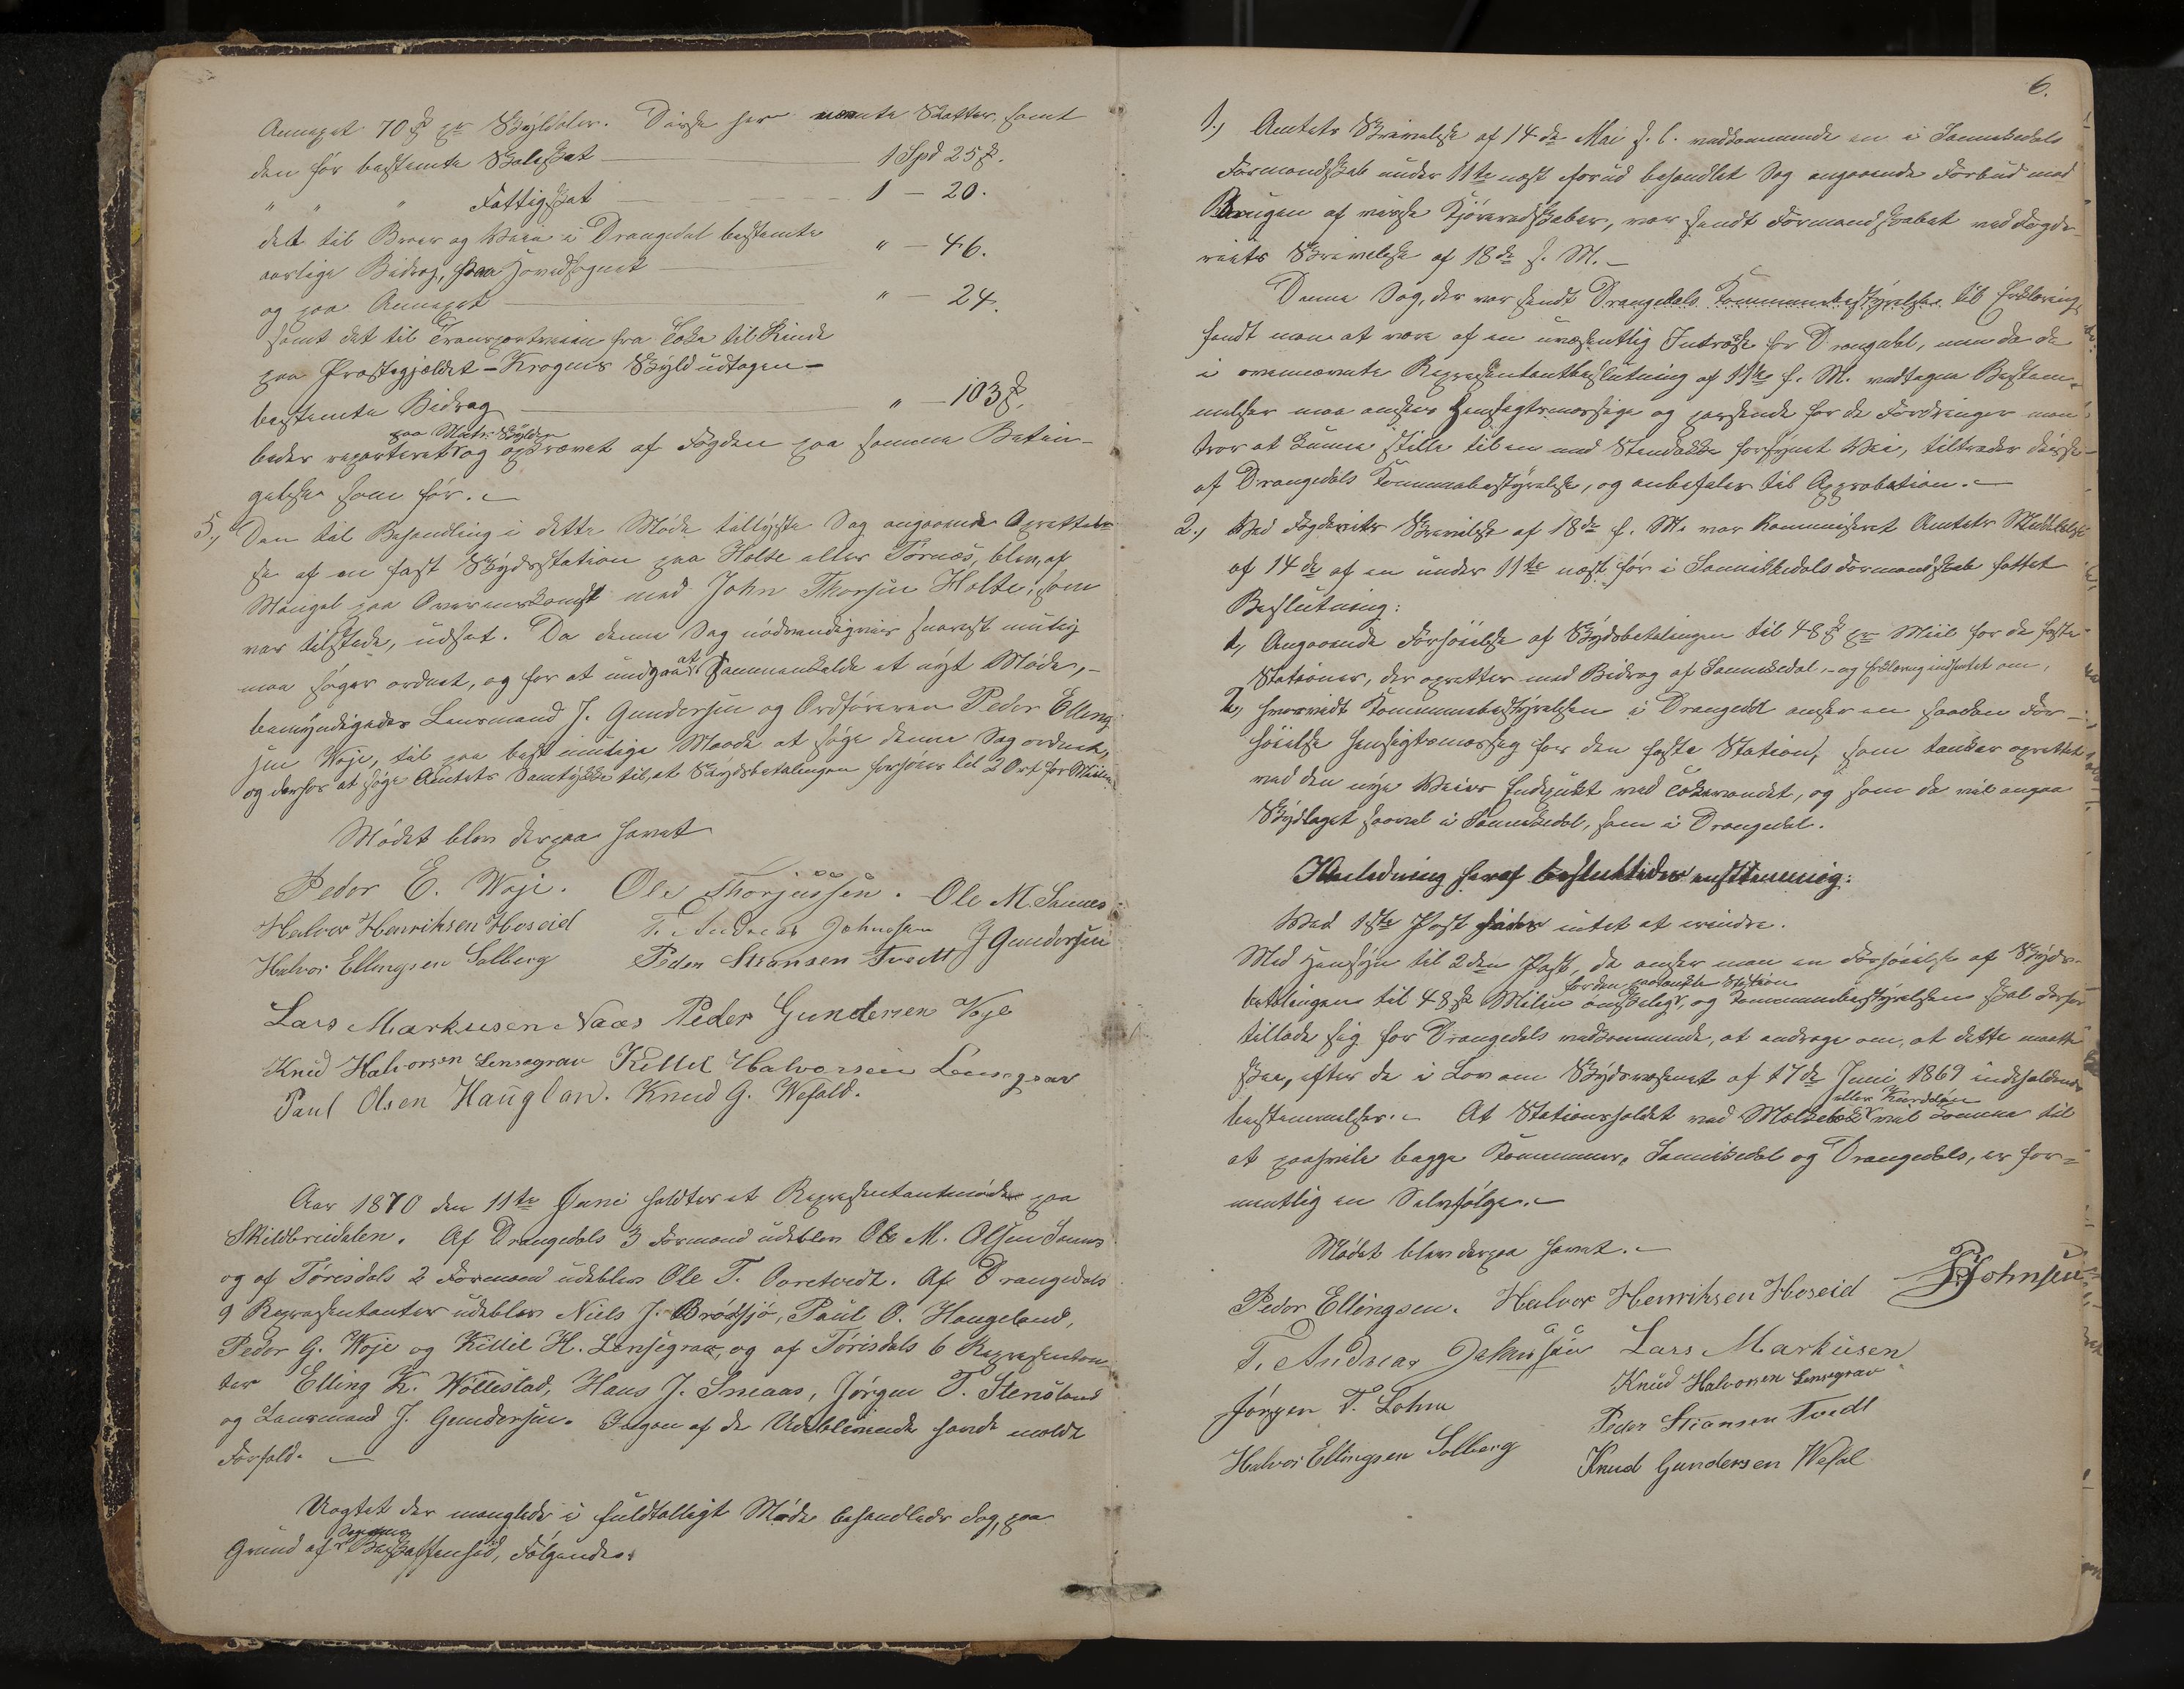 Annexet 70 ß pr Skylddaler. Disse her nævnte Skatter, samt
den før bestemte Skoleskat — 1 Spd 25 ß.
" " " Fattigskat — 1 — 20.
det til Broer og Veie i Drangedal bestemte
aarlige Bidrag, paa Hovedsognet — " — 46.
og paa Annexet — " — 24.
samt det til Transportveien fra Toke til Rinde
paa Præstegjældet - Krogens Skyld udtagen -
bestemte Bidrag — " — 103 ß.
bedes repartered paa Matr. Skylden og opkrævet af Fogden paa samme Betin-
gelser som før. —
5., Den til Behandling i dette Møde tillyste Sag angaaende Oprettel-
se af en fast Skydsstation paa Holte eller Tornæs, blev, af
Mangel paa Overenskomst med John Thorsen Holte, som
var tilstede, udsat. Da denne Sag nødvendigviis snarest mulig
maa søges ordnet, og for at undgaa at sammenkalde et nyt Møde, -
bemyndigedes Lensmand J. Gundersen og Ordføreren Peder Elling-
sen Woje, til paa bedst mulige Maade at søge denne Sag ordnet,
og derfor at søge Amtets Samtykke til, at Skydsbetalingen forhøies til 2 Ort for Milen.
Mødet blev derpaa hævet
Peder E. Woje. Ole Thorjussen. Ole M. Sannes
Halvor Henriksen Hoseid T. Andreas Johnsen J Gundersen
Halvor Ellingsen Solberg Peder Stiansen Tvedt
Lars Markusen Naas Peder Gundersen Voje
Knud Halvorsen Lensegrav Kittil Halvorsen Lensegrav
Paul Olsen Hauglan. Knud G. Wefald.
Aar 1870 den 11te Juni holdtes et Repræsentantmøde paa
Skildbredalen. Af Drangedals 3 Formænd udeblev Ole M. Olsen Sannes
og af Tørisdals 2 Formænd udeblev Ole T. Aaretvedt. Af Drangedals
9 Repræsentanter udeblev Niels J. Brødsjø, Paul O. Haugeland,
Peder G. Woje og Kittil H. Lensegrav, og af Tørisdals 6 Repræsentan-
ter Elling K. Wøllestad, Hans J. Sneaas, Jørgen T. Stensland
og Lensmand J. Gundersen. Ingen af de Udeblivende havde meldt
Forfald. —
Uagtet der manglede i fuldtalligt Møde behandledes dog, paa
Grund af Sagernes Beskaffenhed, Følgende:
6.
1., Amtets Skrivelse af 14de Mai d. A. vedkommende en i Sannikedals
Formandskab under 11te næst forud behandlet Sag angaaende Forbud mod
Brugen af visse Kjøreredskaber, var sendt Formandskabet med Fogde-
riets Skrivelse af 18de s. M. —
Denne Sag, der var sendt Drangedals Kommunebestyrelse til Erklæring,
fandt man at være af en uvæsentlig Interesse for Drangedal, men da de
i ovennævnte Repræsentantbeslutning af 11te f. M. vedtagne Bestem-
melser maa ansees hensigtsmæssige og passende for de Fordringer man
tror at kunne stille til en med Stendække forsynet Vei, tiltrædes disse
af Drangedals Kommunebestyrelse, og anbefales til Approbation. —
2., Med Fogderiets Skrivelse af 18de f. M. var kommuniseret Amtets Meddelelse
af 14de af en under 11te næst før i Sannikedals Formandskab fattet
Beslutning:
1, Angaaende Forhøielse af Skydsbetalingen til 48 ß pr Miil for de faste
Stationer, der oprettes med Bidrag af Sannikedal, - og Erklæring indhentet om,
2, hvorvidt Kommunebestyrelsen i Drangedal anser en saadan For-
høielse hensigtsmæssig for den faste Station, som tænkes oprettet
ved den nye Veies Endepunkt ved Tokevandet, og som da vil angaa
Skydslaget saavel i Sannikedal, som i Drangedal.
I Anledning heraf besluttedes enstemmig:
Mod 1ste Post havdes intet at erindre.
Med Hensyn til 2den Post, da anser man en Forhøielse af Skyds-
betalingen til 48 ß Milen for den paatænkte Station ønskelig, og Kommunebestyrelsen skal derfor
tillade sig for Drangedals vedkommende, at andrage om, at dette maatte
skee, efter de i Lov om Skydsvæsenet af 17de Juni 1869 indeholdende
bestemmelser. — At Stationsholdet ved Molkebæk eller Kurddalen vil komme til
at paahvile begge Kommuner, Sannikedal og Drangedals, er for-
mentlig en Selvfølge. —
Mødet blev derpaa hævet. —
Peder Ellingsen. Halvor Henriksen Hoseid P. Johnsen
T. Andreas Johnsen Lars Markusen
Jørgen T. Lohne Knud Halvorsen Lensegrav
Halvor Ellingsen Solberg Peder Stiansen Tvedt
Knud Gundersen Wefal